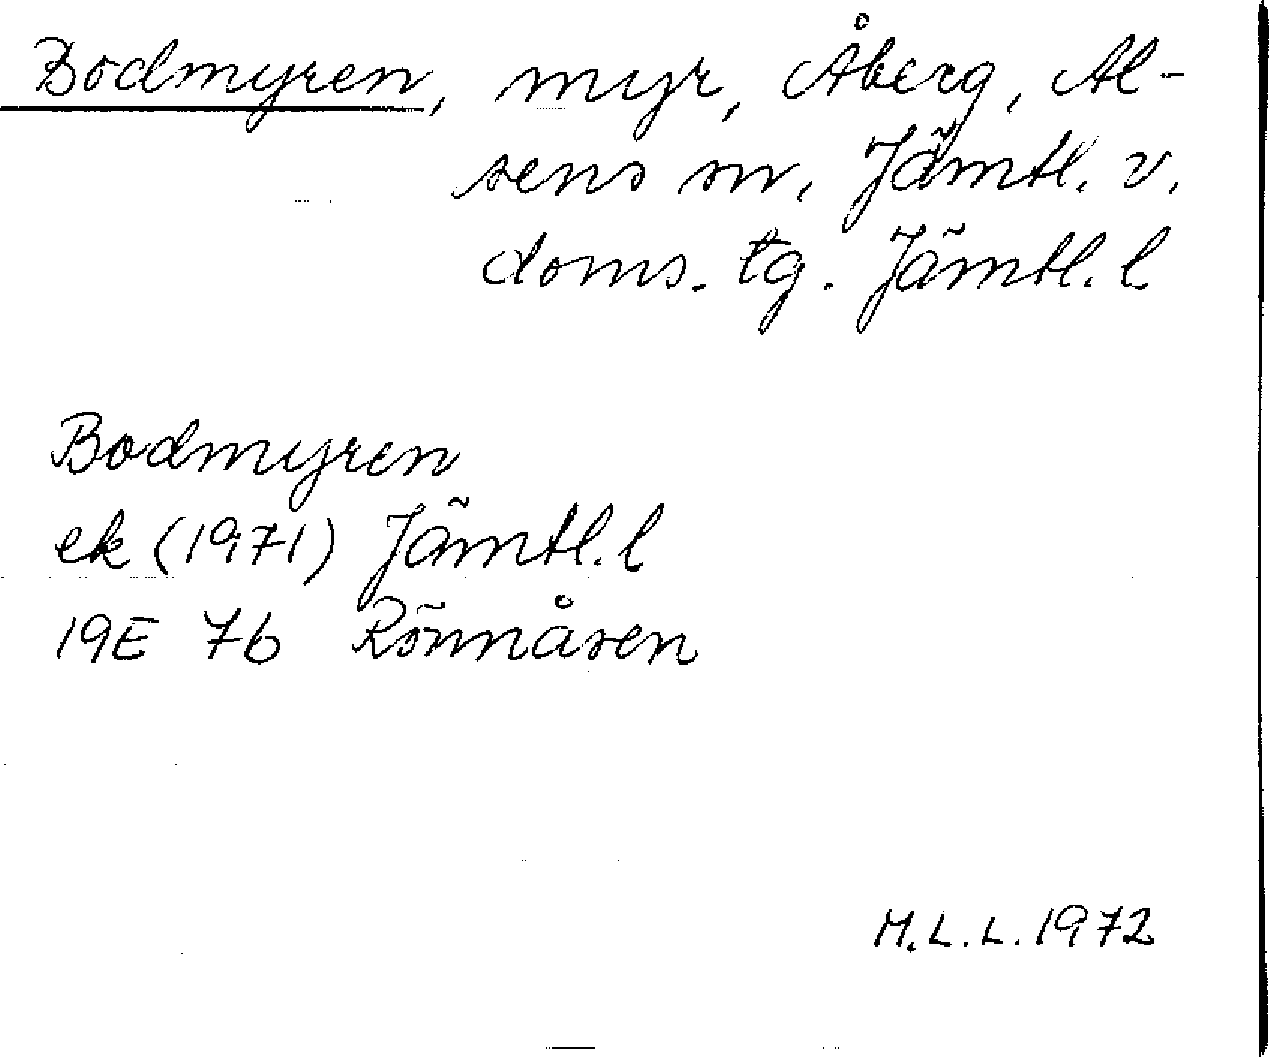 Bodmyren, myr, Åberg, Al-
sens sn, Jämtl. v.
doms. tg. Jämtl. l
Bodmyren
ek (1971) Jämtl. l
19E 7b Rönnåsen
M.L.L. 1972